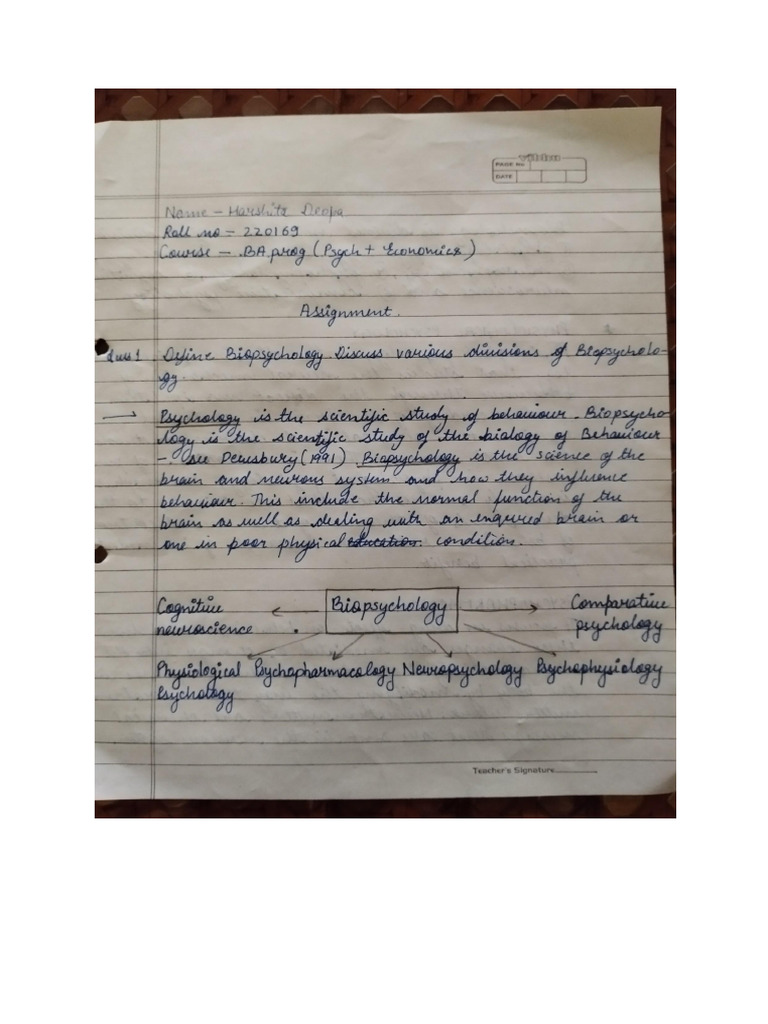 vibbu
PAGE No
DATE
Name - Harshita Deopa
Roll no - 220169
Course - BA prog (Psych + Economics)
Assignment.
Ques 1 Define Biopsychology. Discuss various divisions of Biopsycholo-
gy.
→ Psychology is the scientific study of behaviour. Biopsycho-
logy is the scientific study of the biology of Behaviour
- see Dewsbury (1991). Biopsychology is the science of the
brain and nervous system and how they influence
behaviour. This include the normal function of the
brain as well as dealing with an engured brain or
one in poor physical education condition.
Cognitive Biopsychology Comparative
neuroscience psychology
Physiological Psychopharmacology Neuropsychology Psychophysiology
Psychology
Teacher's Signature